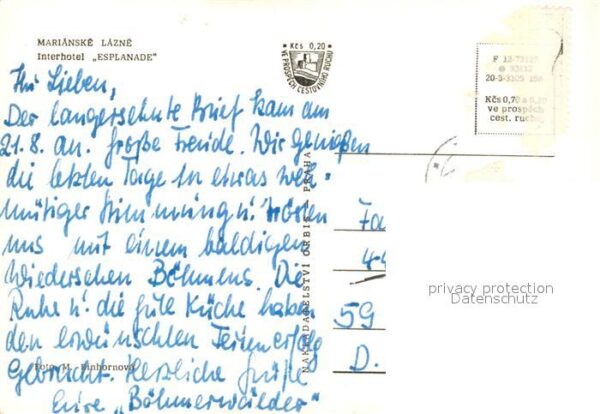 MARIÁNSKÉ LÁZNĚ
Interhotel „ESPLANADE"
Kčs 0,20
VE PROSPĚCH CESTOVNÍHO RUCHU
F
20-3-3105 188
Kčs 0,70 a 0,20
ve prospěch
cest. ruchu
Ihr Lieben,
Der langersehnte Brief kam am
21.8. an. Große Freude. Wir genießen
die letzten Tage in etwas weh-
mütiger Stimmung u. trösten
uns mit einem baldigen
Wiedersehen Böhmens. Die
Ruhe u. die gute Küche haben
den erwünschten Ferienerfolg
Gebracht. Herzliche Grüße
Eure „Böhmerwäldler"
Fa
44
59
D.
NAKLADATELSTVÍ ORBIS PRAHA
Foto: M. Einhornová
privacy protection
Datenschutz